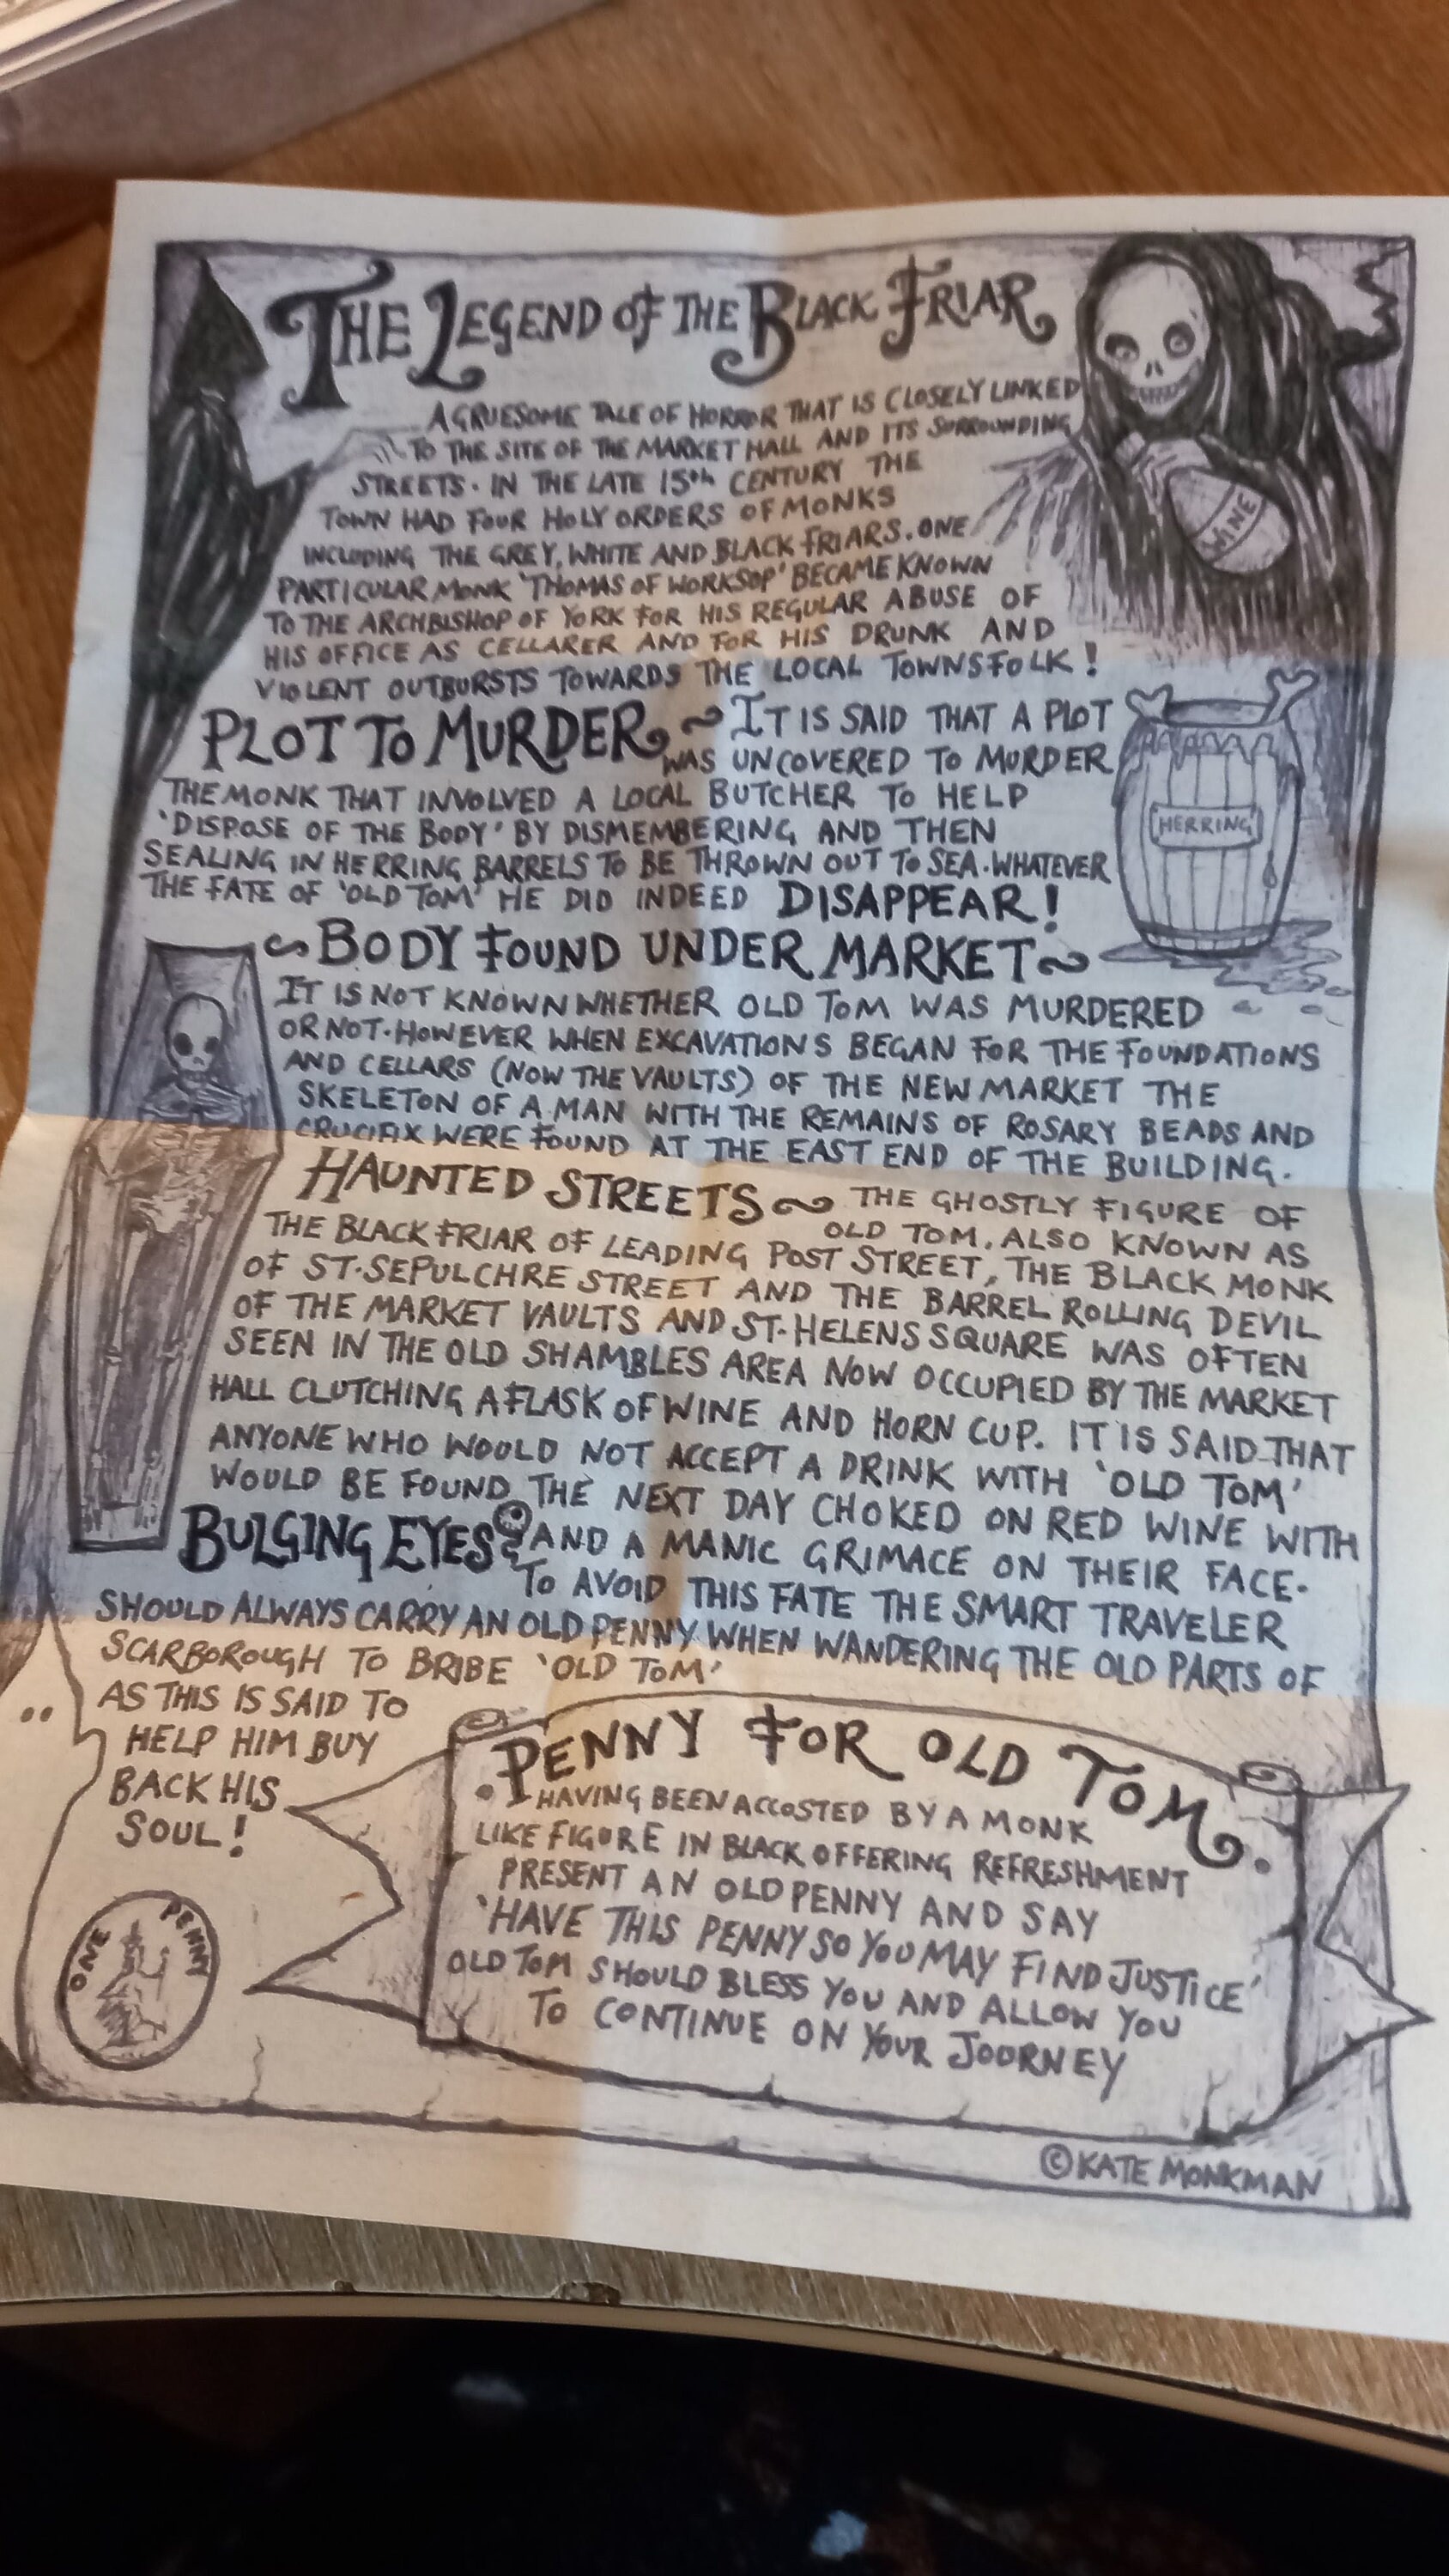 THE LEGEND OF THE BLACK FRIAR
A GRUESOME TALE OF HORROR THAT IS CLOSELY LINKED
TO THE SITE OF THE MARKET HALL AND ITS SURROUNDING
STREETS. IN THE LATE 15TH CENTURY THE
TOWN HAD FOUR HOLY ORDERS OF MONKS
INCLUDING THE GREY, WHITE AND BLACK FRIARS. ONE
PARTICULAR MONK 'THOMAS OF WORKSOP' BECAME KNOWN
TO THE ARCHBISHOP OF YORK FOR HIS REGULAR ABUSE OF
HIS OFFICE AS CELLARER AND FOR HIS DRUNK AND
VIOLENT OUTBURSTS TOWARDS THE LOCAL TOWNSFOLK!
WINE
PLOT TO MURDER ~ IT IS SAID THAT A PLOT
WAS UNCOVERED TO MURDER
THE MONK THAT INVOLVED A LOCAL BUTCHER TO HELP
'DISPOSE OF THE BODY' BY DISMEMBERING AND THEN
SEALING IN HERRING BARRELS TO BE THROWN OUT TO SEA. WHATEVER
THE FATE OF 'OLD TOM' HE DID INDEED DISAPPEAR!
HERRING
~ BODY FOUND UNDER MARKET ~
IT IS NOT KNOWN WHETHER OLD TOM WAS MURDERED
OR NOT. HOWEVER WHEN EXCAVATIONS BEGAN FOR THE FOUNDATIONS
AND CELLARS (NOW THE VAULTS) OF THE NEW MARKET THE
SKELETON OF A MAN WITH THE REMAINS OF ROSARY BEADS AND
CRUCIFIX WERE FOUND AT THE EAST END OF THE BUILDING.
HAUNTED STREETS ~ THE GHOSTLY FIGURE OF
OLD TOM, ALSO KNOWN AS
THE BLACK FRIAR OF LEADING POST STREET, THE BLACK MONK
OF ST. SEPULCHRE STREET AND THE BARREL ROLLING DEVIL
OF THE MARKET VAULTS AND ST. HELENS SQUARE WAS OFTEN
SEEN IN THE OLD SHAMBLES AREA NOW OCCUPIED BY THE MARKET
HALL CLUTCHING A FLASK OF WINE AND HORN CUP. IT IS SAID THAT
ANYONE WHO WOULD NOT ACCEPT A DRINK WITH 'OLD TOM'
WOULD BE FOUND THE NEXT DAY CHOKED ON RED WINE WITH
BULGING EYES AND A MANIC GRIMACE ON THEIR FACE.
TO AVOID THIS FATE THE SMART TRAVELER
SHOULD ALWAYS CARRY AN OLD PENNY WHEN WANDERING THE OLD PARTS OF
SCARBOROUGH TO BRIBE 'OLD TOM'
AS THIS IS SAID TO
HELP HIM BUY
BACK HIS
SOUL!
ONE PENNY
PENNY FOR OLD TOM.
HAVING BEEN ACCOSTED BY A MONK
LIKE FIGURE IN BLACK OFFERING REFRESHMENT
PRESENT AN OLD PENNY AND SAY
'HAVE THIS PENNY SO YOU MAY FIND JUSTICE'
OLD TOM SHOULD BLESS YOU AND ALLOW YOU
TO CONTINUE ON YOUR JOORNEY
© KATE MONKMAN